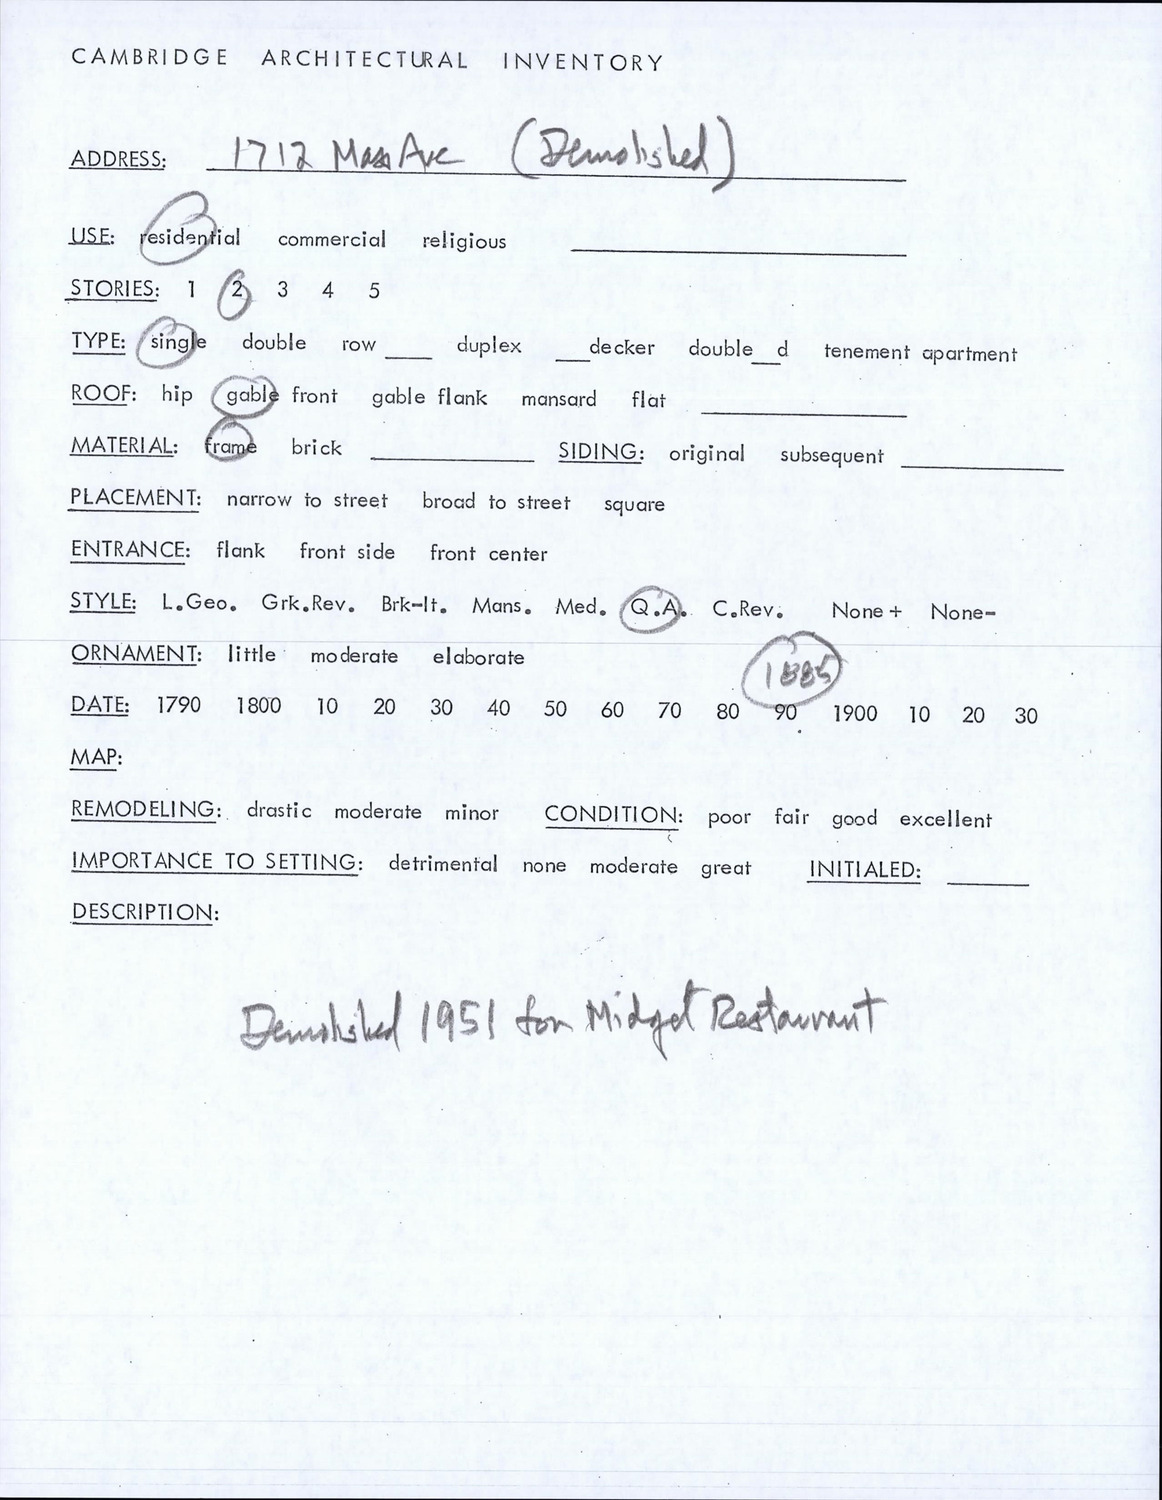 CAMBRIDGE ARCHITECTURAL INVENTORY
ADDRESS: 1712 Mass Ave (Demolished)
USE: residential commercial religious
STORIES: 1 2 3 4 5
TYPE: single double row ____ duplex ___decker double__d tenement apartment
ROOF: hip gable front gable flank mansard flat
MATERIAL: frame brick ____ SIDING: original subsequent ____
PLACEMENT: narrow to street broad to street square
ENTRANCE: flank front side front center
STYLE: L.Geo. Grk.Rev. Brk-It. Mans. Med. Q.A. C.Rev. None+ None-
ORNAMENT: little moderate elaborate
1885
DATE: 1790 1800 10 20 30 40 50 60 70 80 90 1900 10 20 30
MAP:
REMODELING: drastic moderate minor CONDITION: poor fair good excellent
IMPORTANCE TO SETTING: detrimental none moderate great INITIALED: ____
DESCRIPTION:
Demolished 1951 for Midget Restaurant